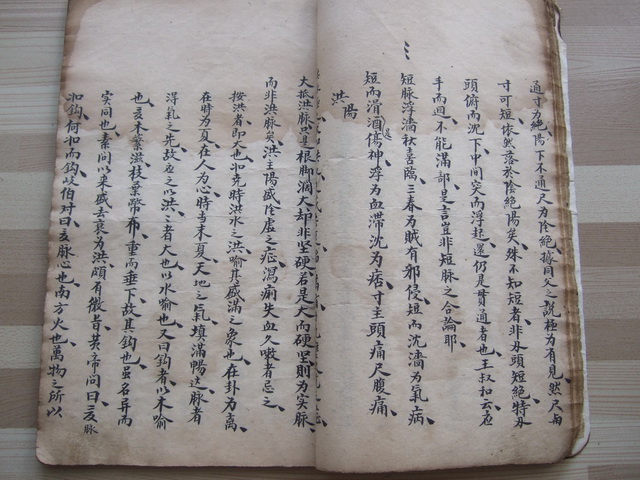 通寸為絶陽下不通尺為陰絶據同父之説極為有見然尺与
寸可短依然落於陰絶陽矣殊不知短者非两頭短絶特两
頭俯而沈下中間突而浮起還仍是貫通者也王叔和云應
手而迴不能滿部是言豈非短脉之合論耶
短脉浮濇秋喜臨三春為賊有邪侵短而沈濇為氣病
短而滑酒傷神浮為血滯沈為痞寸主頭痛尺腹痛
洪陽
大抵洪脉只是根脚濶大却非坚硬若是大而硬坚則為实脉
而非洪脉矣洪主陽盛陰虚之症瀉痢失血久嗽者忌之
按洪者即大也如尭時洪水之洪喻其盛滿之象也在卦为离
在時为夏在人为心時当末夏天地之氣填滿暢达脉者
浮氣之先故应之以洪洪者大也以水喻也又曰鈎者以木喻
也夏木蕃滋枝葉幣布重而垂下故其鈎也虽名异而
实同也素问以来盛去衰为洪頗有微旨黄帝问曰夏脉
如鈎何如而鈎岐伯对曰夏脉心也南方火也萬物之所以